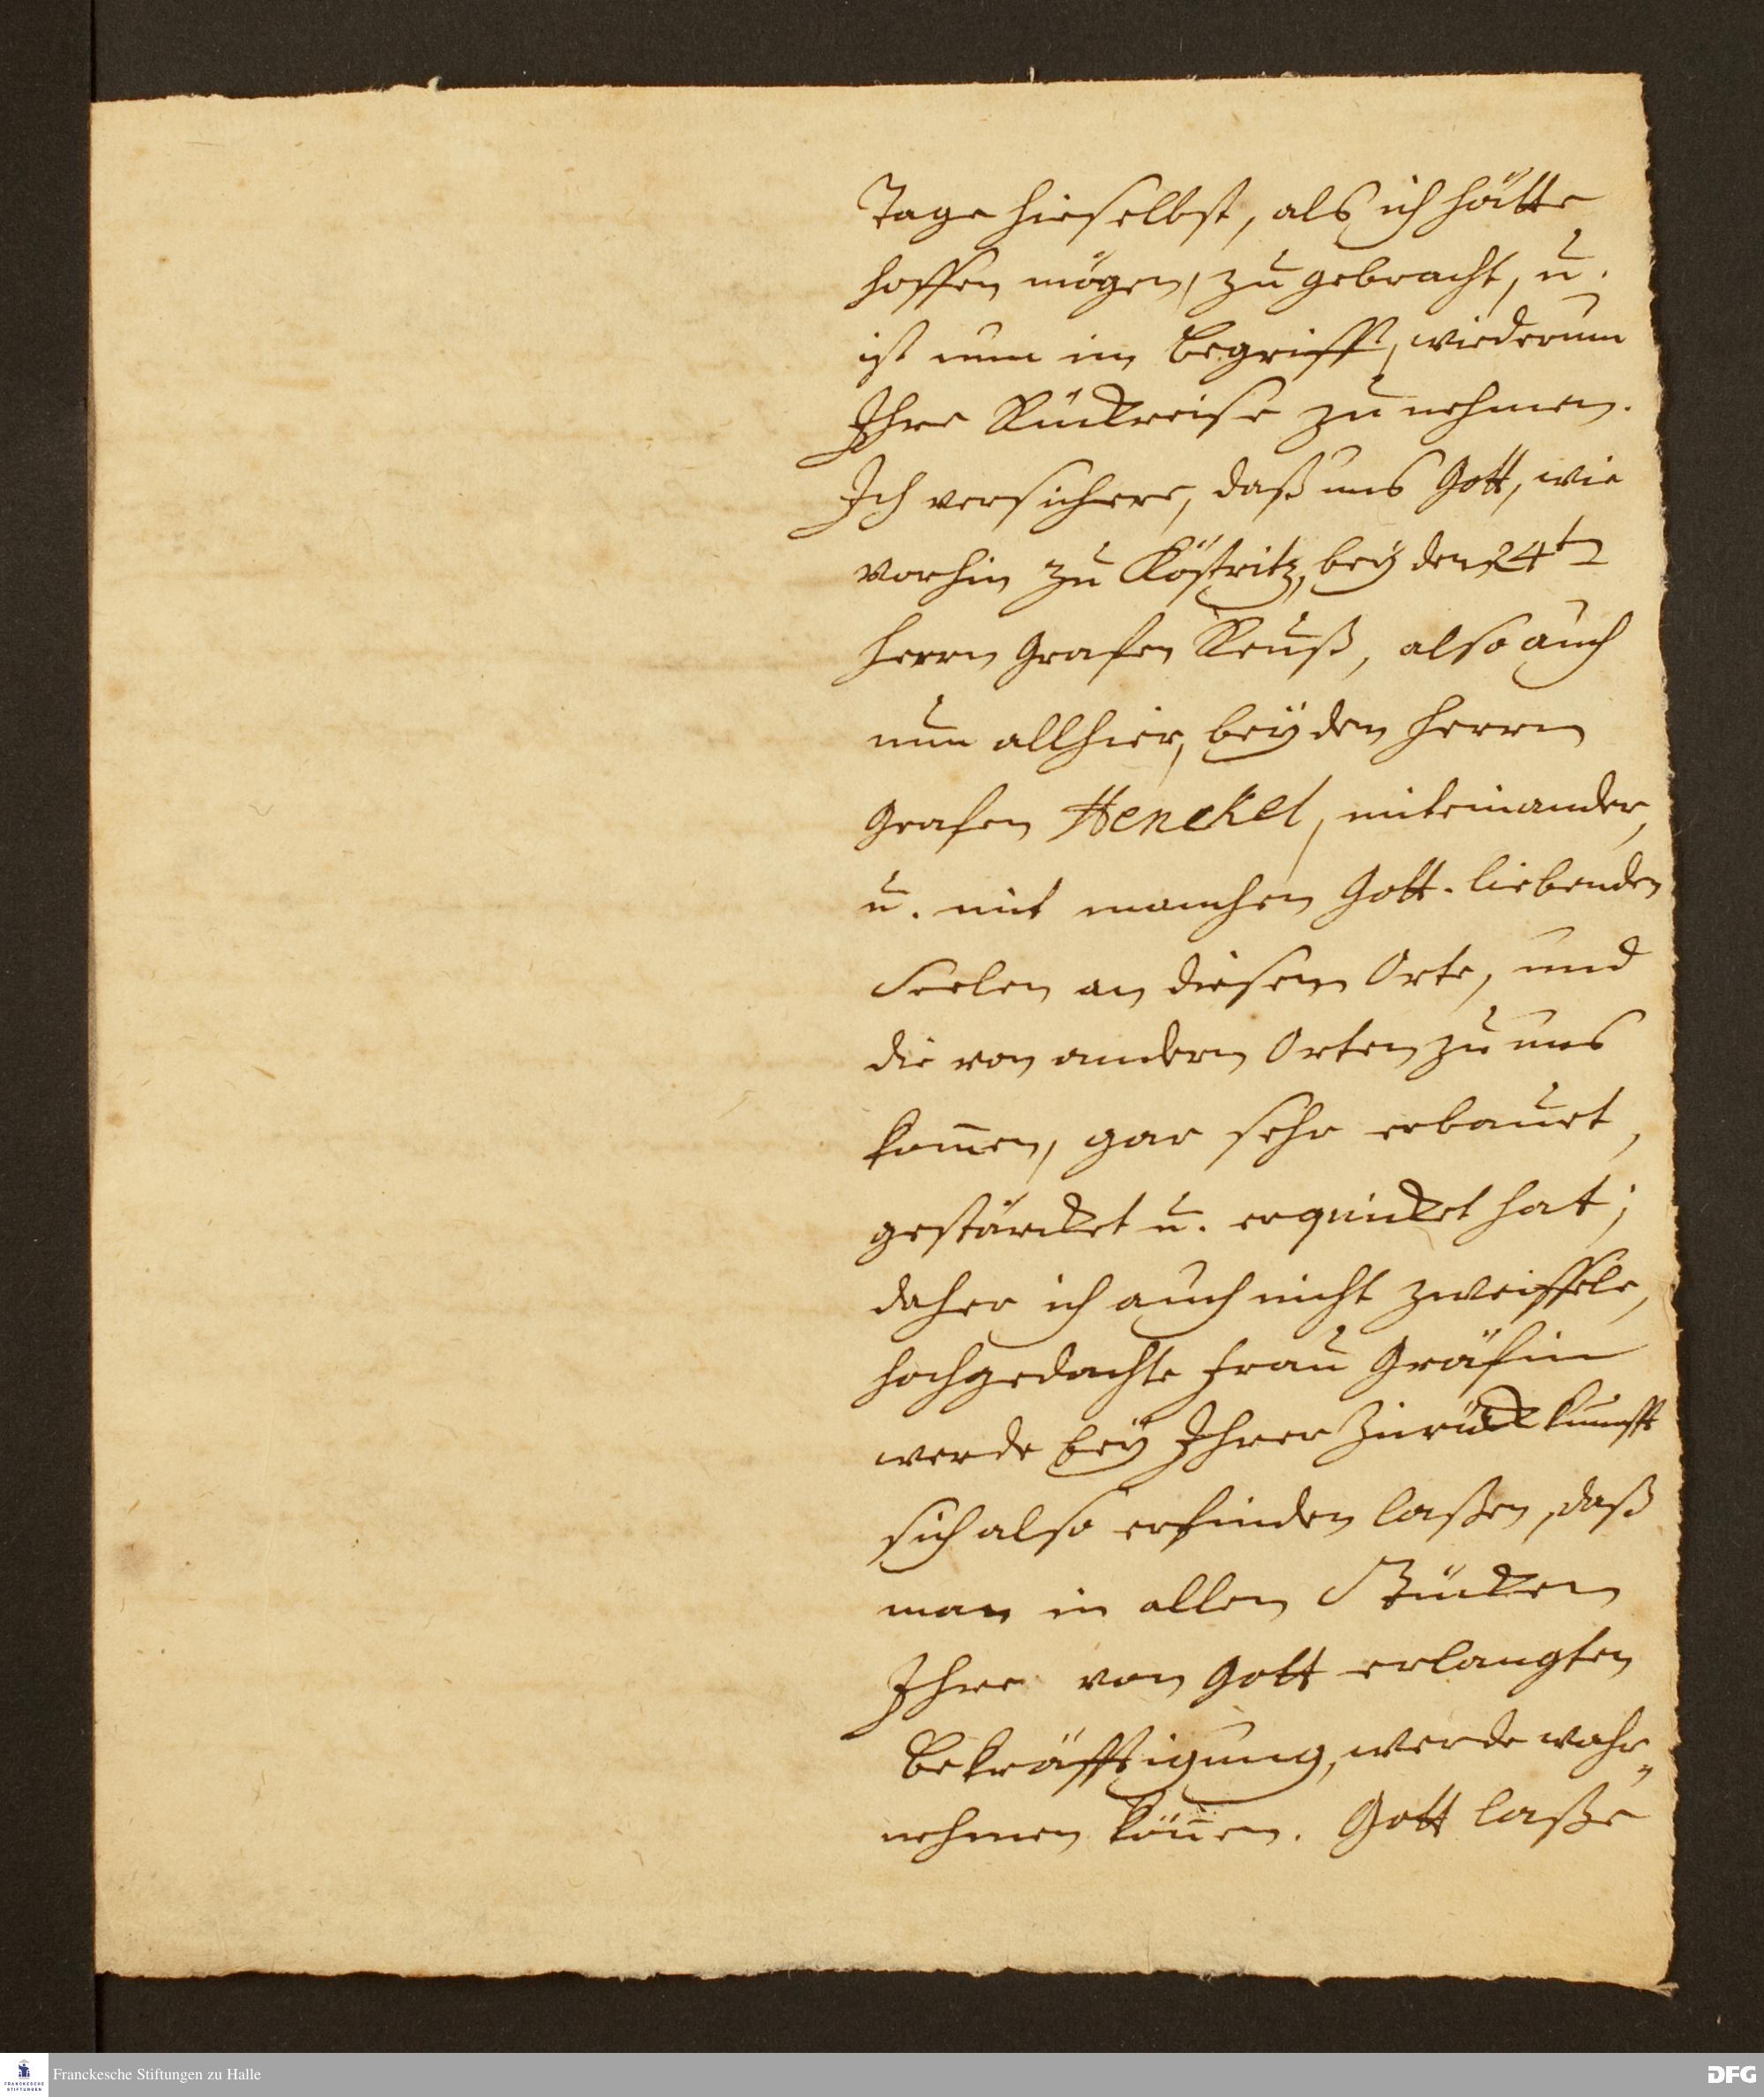 Tage hieselbst, als ich hätte
hoffen mögen, zu gebracht, u.
ist nun im begriff, wiederum
Ihre Rückreise zu nehmen.
Ich versichere, daß uns Gott, wie
vorhin zu Köstritz, bey den 24tn
Herrn Grafen Reuß, also auch
nun allhier, bey den Herrn
Grafen Henckel, miteinander,
u. mit manchen Gott-liebenden
Seelen an diesem Orte, und
die von andern Orten zu uns
kom̄en, gar sehr erbauet,
gestärcket u. erquicket hat;
daher ich auch nicht zweiffele,
hochgedachte Frau Gräfin
werde bey Ihrer Zurückkunfft
sich also erfinden laßen, daß
man in allen Stücken
Ihre von Gott erlangten
Bekräfftigung, werde wahr„
nehmen kön̄en. Gott laße
Franckesche Stiftungen zu Halle
FRANCKESCHE
STIFTUNGEN
DFG